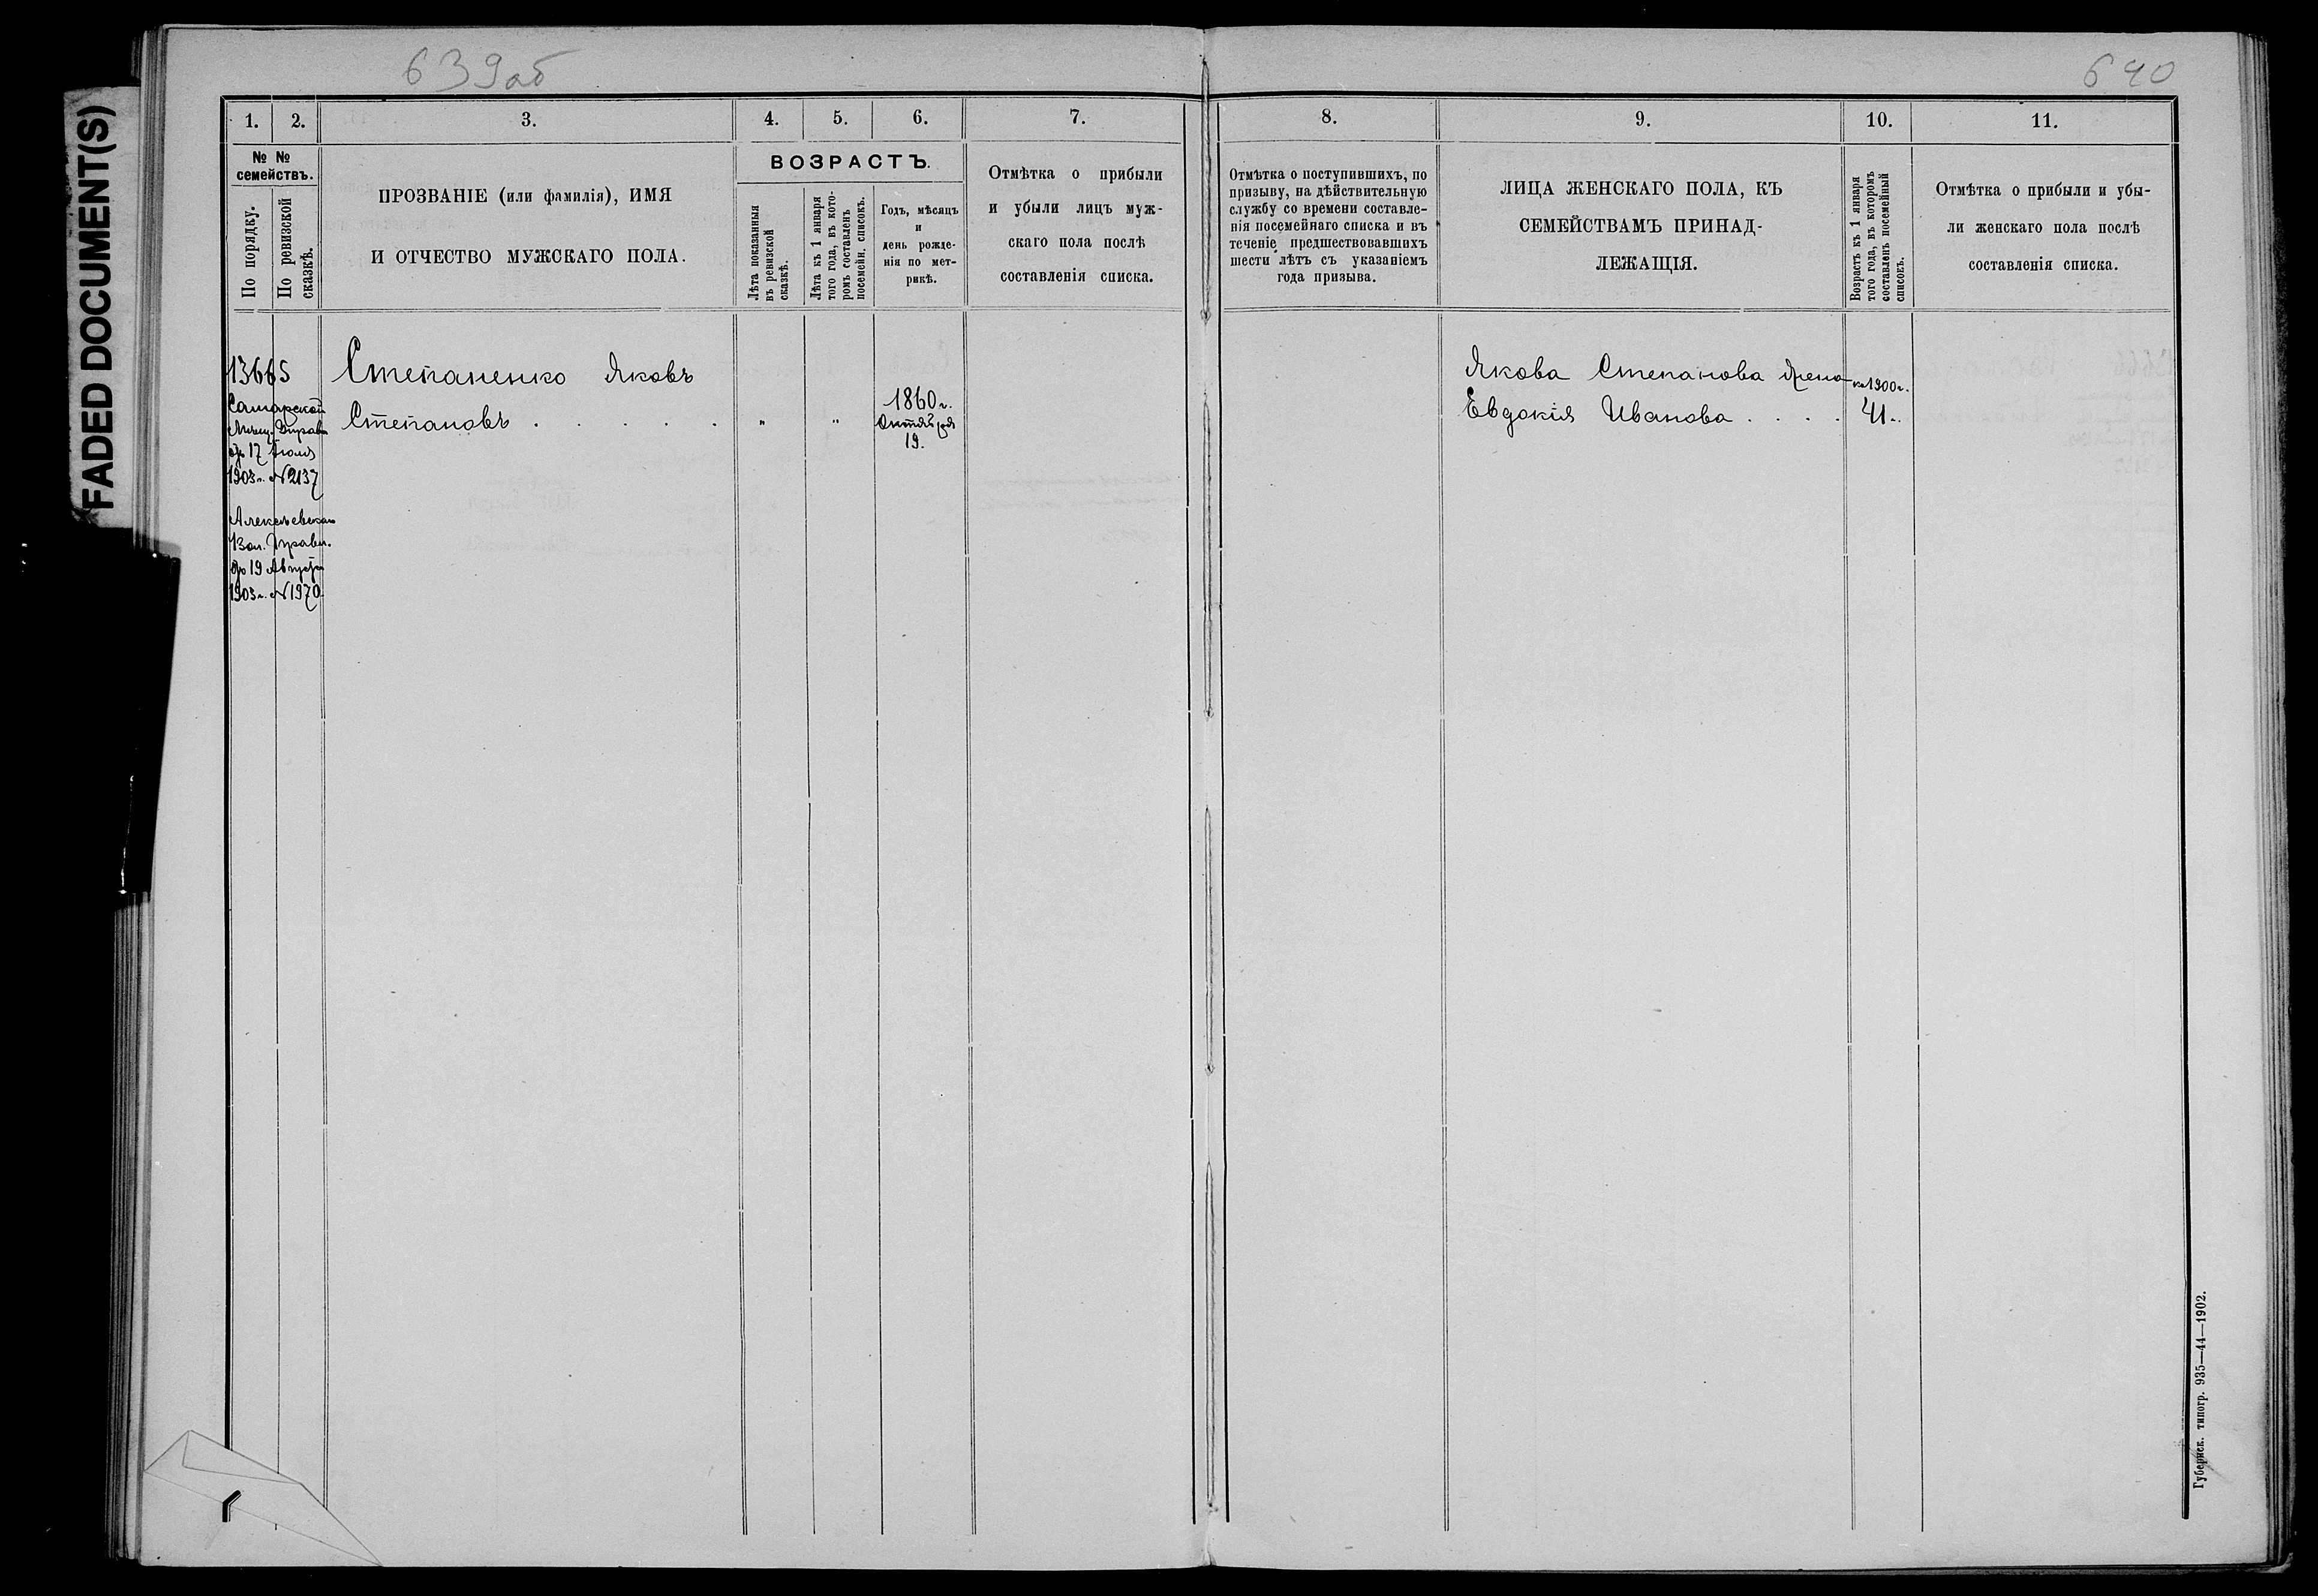 639об
640
FADED DOCUMENT(S)
1.
2.
3.
4.
5.
6.
7.
8.
9.
10.
11.
№ №
семействъ.
По порядку.
По ревизской
сказкѣ.
ПРОЗВАНІЕ (или фамилія), ИМЯ
И ОТЧЕСТВО МУЖСКАГО ПОЛА.
ВОЗРАСТЪ.
Лѣта показанныя
въ ревизской
сказкѣ.
Лѣта къ 1 января
того года, въ кото-
ромъ составленъ
посемейн. списокъ.
Годъ, мѣсяцъ
и
день рожде-
нія по мет-
рикѣ.
Отмѣтка о прибыли
и убыли лицъ муж-
скаго пола послѣ
составленія списка.
Отмѣтка о поступившихъ, по
призыву, на дѣйствительную
службу со времени составле-
нія посемейнаго списка и въ
теченіе предшествовавшихъ
шести лѣтъ съ указаніемъ
года призыва.
ЛИЦА ЖЕНСКАГО ПОЛА, КЪ
СЕМЕЙСТВАМЪ ПРИНАД-
ЛЕЖАЩІЯ.
Возрастъ къ 1 января
того года, въ которомъ
составленъ посемейный
списокъ.
Отмѣтка о прибыли и убы-
ли женскаго пола послѣ
составленія списка.
13665
Степаненко Яковъ
Степановъ . . . . .
" "
1860 г.
Октября
19.
Самарской
Мѣщ. Управы
17 Іюля
1903 г. № 2137
Алексѣевскаго
Вол. Правл.
19 Августа
1903 г. № 1970
Якова Степанова жена
Евдокія Иванова . . . .
къ 1900 г.
41 г.
Губернск. типогр. 935—44—1902.